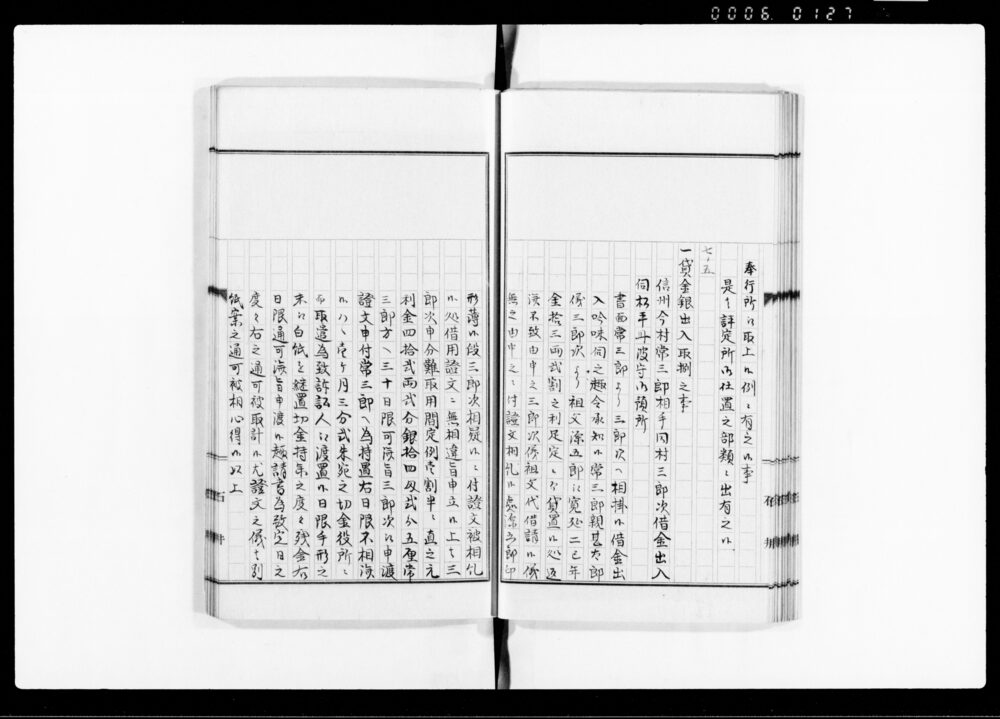 0006. 0127
奉行所江取上ル例ニ有之ル事
是ハ評定所御仕置之部類ニ出有之ル
七ノ五
一貸金銀出入取捌之事
信州今村常三郎相手同村三郎次借金出入
伺松平丹波守御預所
書面常三郎より三郎次へ相掛ル借金出
入吟味伺之趣令承知ル常三郎親甚太郎
儀三郎次より祖父源五郎江寛延二巳年
金拾三両弐割之利足定ニ而貸置ル処返
済不致由申之三郎次儀祖父代借請ル儀
無之由申之ニ付證文相糺ル処源五郎印
形薄ル段三郎次相疑ルニ付證文被相糺
ル処借用證文ニ無相違旨申立ル上ハ三
郎次申分難取用間定例壱割半ニ直之元
利金四拾弐両弐分銀拾四匁弐分五厘常
三郎方へ三十日限可済旨三郎次江申渡
證文申付常三郎へ為持置右日限不相済
ルハヽ壱ヶ月三分弐朱宛之切金役所ニ
而取遣為致訴訟人江渡置ル日限手形之
末江白紙を継置切金持参之度々残金右
日限通可済旨申渡ル趣請書為致定日之
度々右之通可被取計ル尤證文之儀ハ別
紙案之通可被相心得ル以上